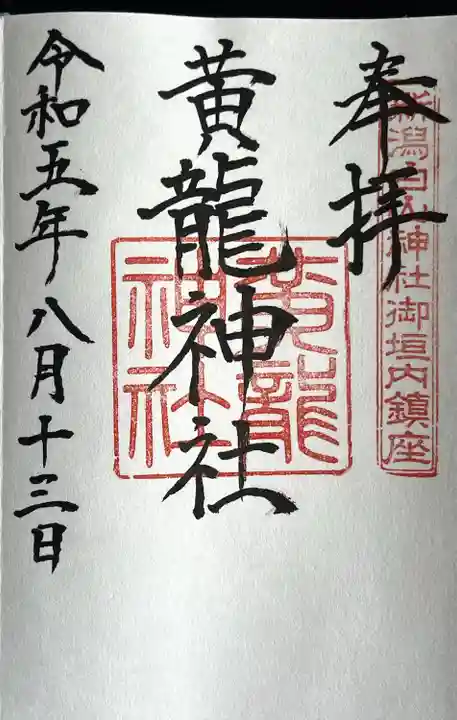 奉拝
新潟白山神社御垣内鎮座
黄龍神社
黄龍
神社
令和五年八月十三日